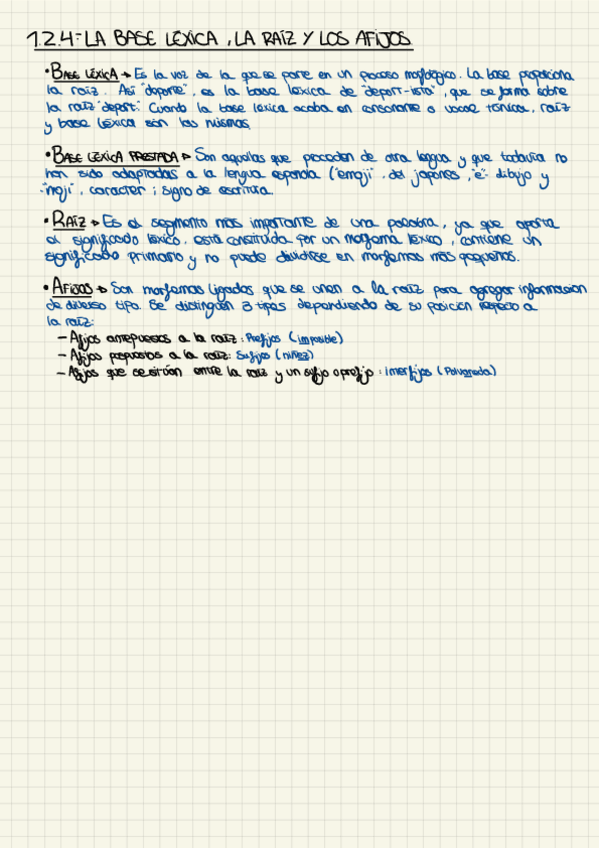 1.2.4.- LA BASE LÉXICA, LA RAÍZ Y LOS AFIJOS
• BASE LÉXICA → Es la voz de la que se parte en un proceso morfológico. La base proporciona
la raíz. Así "deporte", es la base léxica de "deport-ista", que se forma sobre
la raíz "deport". Cuando la base léxica acaba en consonante o vocal tónica, raíz
y base léxica son las mismas.
• BASE LÉXICA PRESTADA → Son aquellas que proceden de otra lengua y que todavía no
han sido adaptadas a la lengua española ("emoji", del japonés, "e": dibujo y
"moji", caracter; signo de escritura.
• RAÍZ → Es el segmento más importante de una palabra, ya que aporta
el significado léxico, está constituida por un morfema léxico, contiene un
significado primario y no puede dividirse en morfemas más pequeños.
• AFIJOS → Son morfemas ligados que se unen a la raíz para agregar información
de diverso tipo. Se distinguen 3 tipos dependiendo de su posición respecto a
la raíz:
– Afijos antepuestos a la raíz: Prefijos (imposible)
– Afijos pospuestos a la raíz: Sufijos (niñez)
– Afijos que se sitúan entre la raíz y un sufijo o prefijo: interfijos (Polvareda)